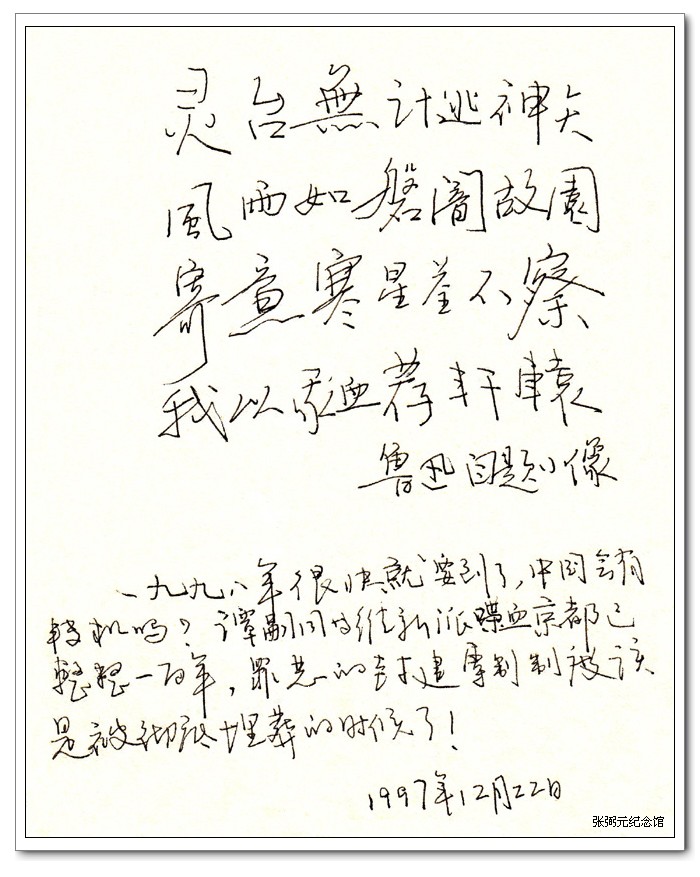 灵台無计逃神矢
風雨如磐闇故園
寄意寒星荃不察
我以我血荐轩轅
鲁迅自题小像
一九九八年很快就要到了,中国会有
转机吗?谭嗣同 维新派喋血京都已
整整一百年,罪恶的封建專制制度该
是被彻底埋葬的时候了!
1997年12月22日
张弼元纪念馆